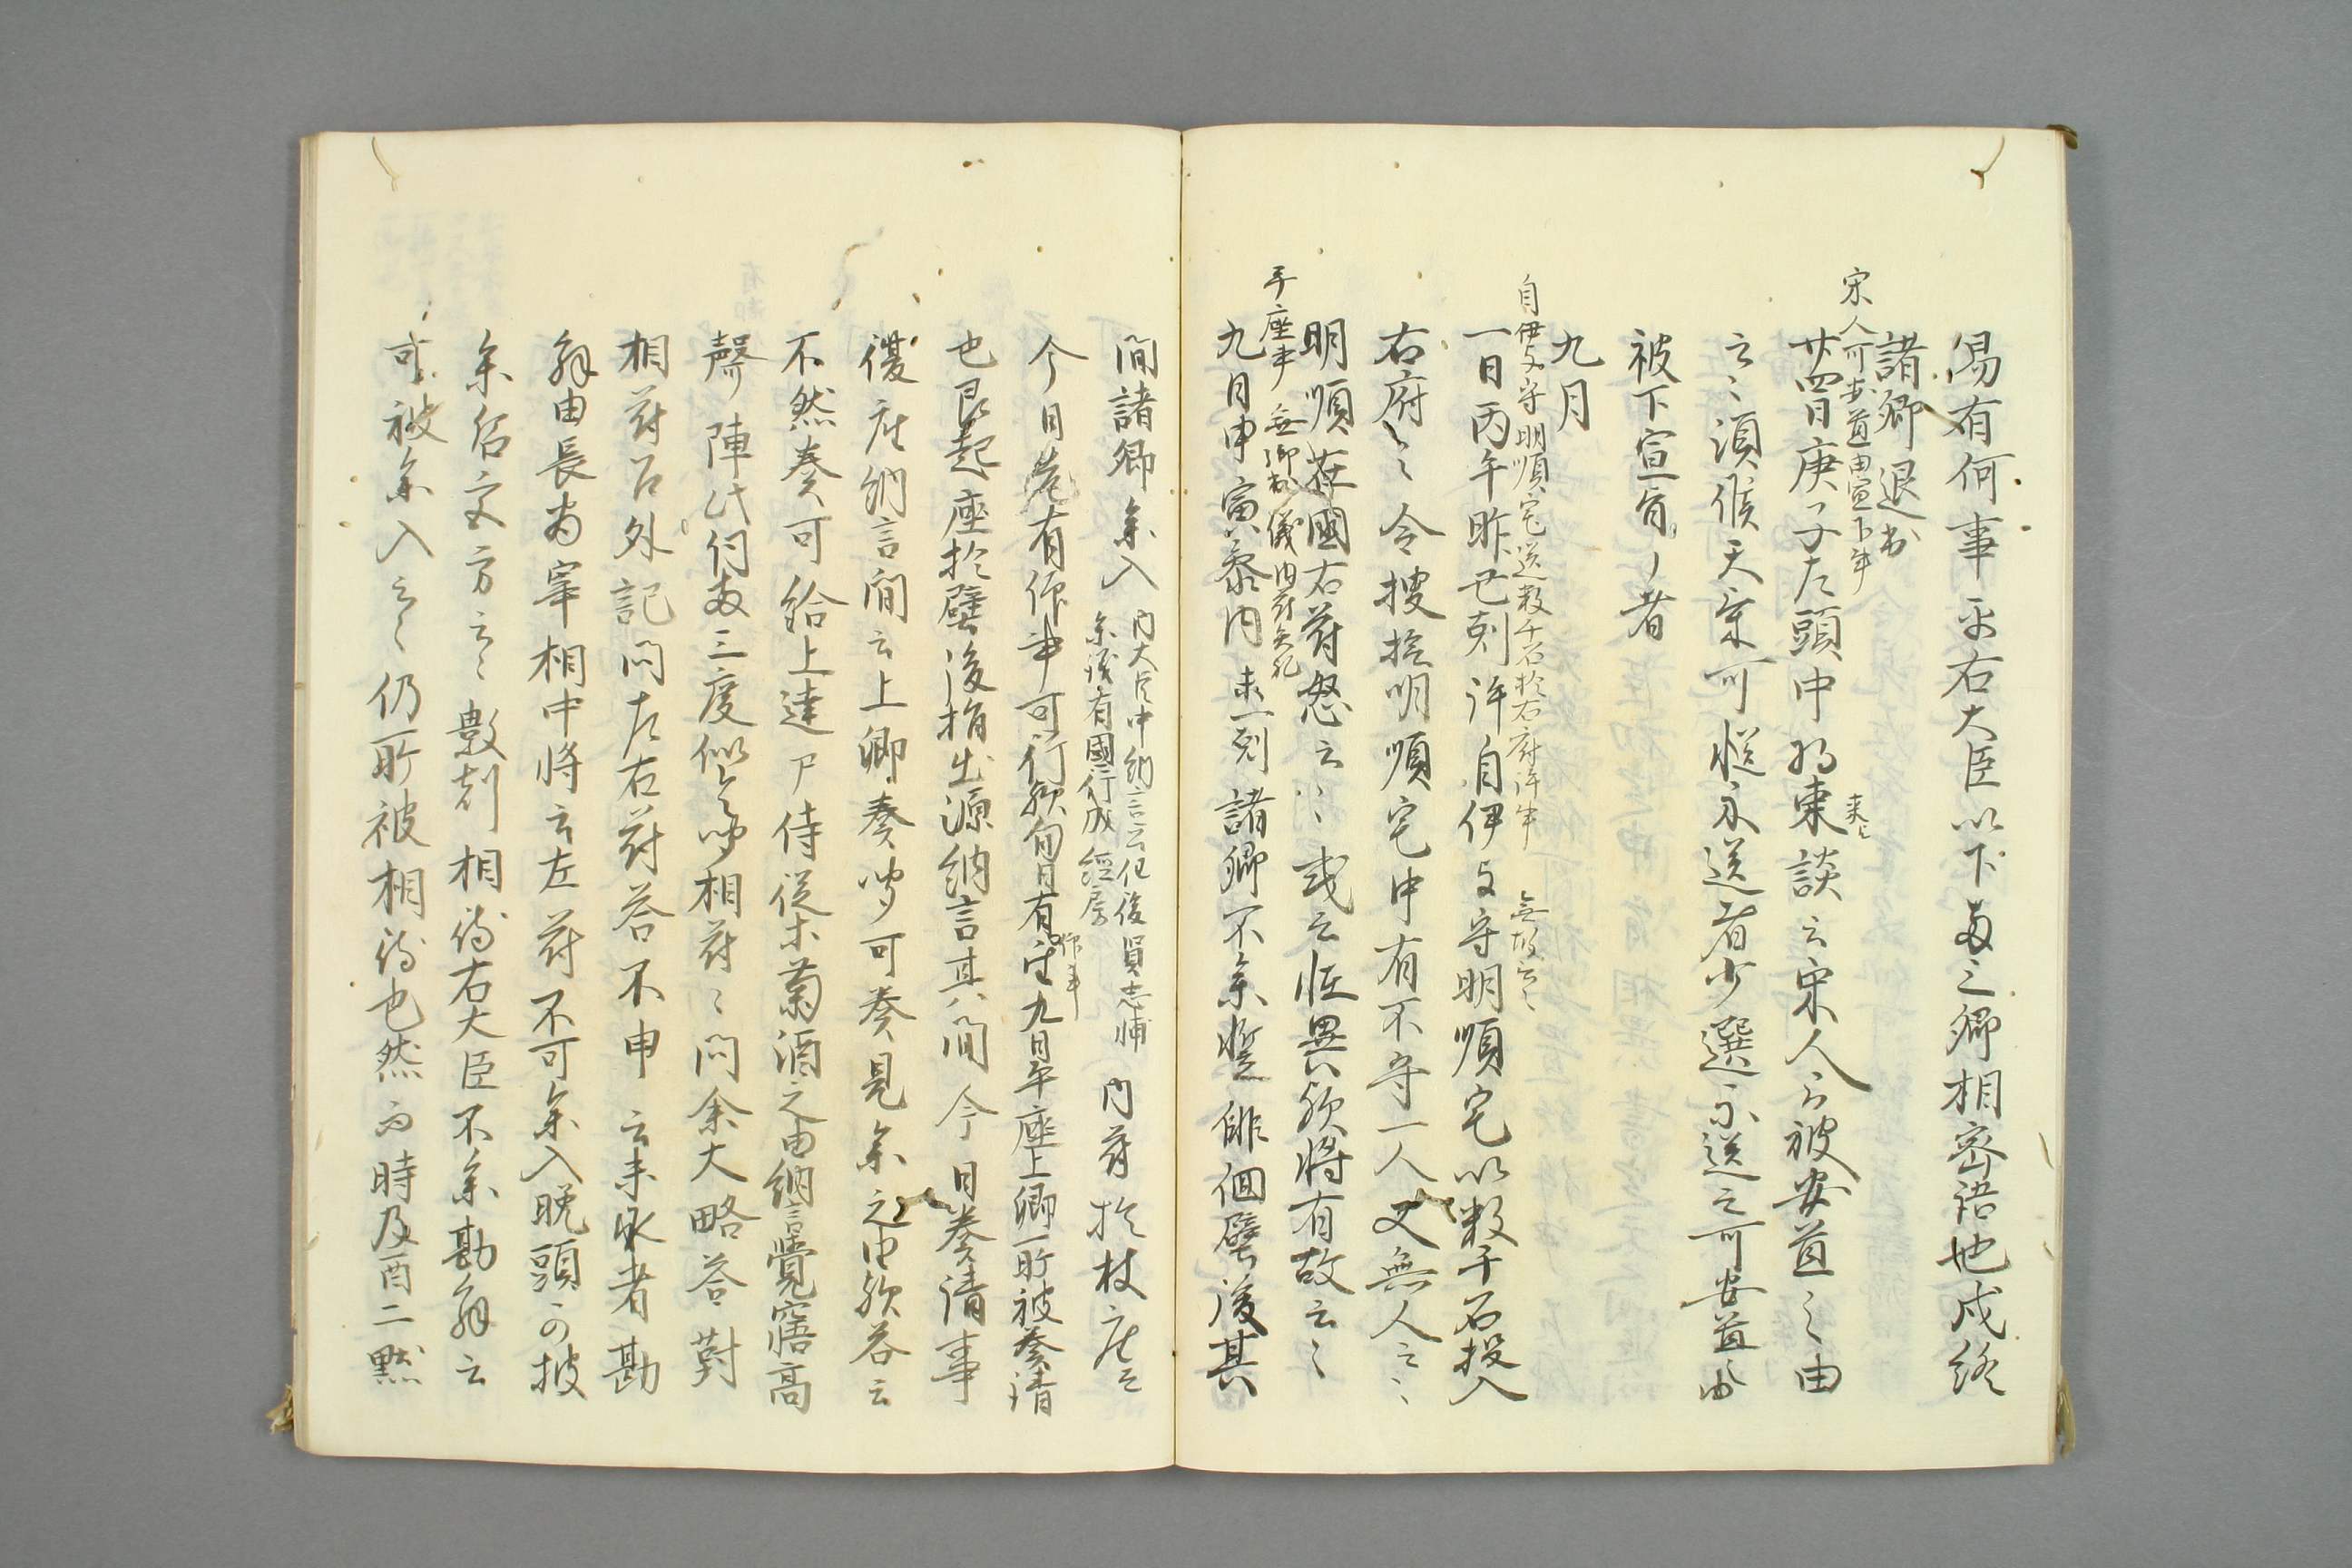 傷有何事乎右大臣以下両三卿相密語也戌終
諸卿退出
宋人可安置由宣下事
廿四日庚子左頭中将来談云宋人可被安置之由
来云
云々須候天気可従永送者少選示送云可安置由
被下宣旨了者
九月
自伊与守明順宅送数千石於右府許事
一日丙午昨巳剋許自伊与守明順宅以数千石投入
無故云々
右府々々令捜検明順宅中有不守一人又無人云々
明順在国右府怒云々或云恠異歟将有故云々
平座事 無御出儀 内府失礼
九日甲寅参内未一剋諸卿不参暫徘徊壁後其
間諸卿参入 内大臣中納言云但後員志輔 参議有国行成経房 内府於杖座云
今日若有作事可行歟旬日有定九日平座上卿所被奏請
作事
也良起座於壁後指出源納言其間今日奏請事
復座納言間云上卿奏哉可奏見参之由歟答云
不然奏可給上達下侍従等菊酒之由納言覚寤高
声陣氏伺両三度似令咲相府々問余大略答對
相府召外記問左右府答不申 云未承者勘
解由長為宰相中将云左府不可参入晩頭可被
参倍定方云々数剋相待右大臣不参勘解云
可被参入云々仍所被相待也然而時及酉二點